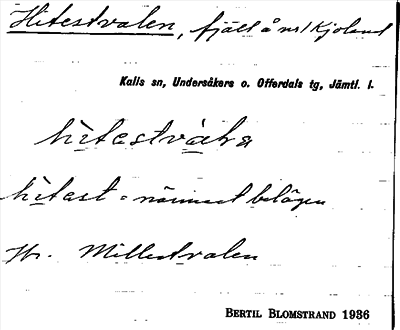 Hitestvalen, fjäll å nr 1 Kjoland
Kalls sn, Undersåkers o. Offerdals tg, Jämtl. l.
hìtestvàḷa
hìtest = närmast belägen
Jfr. Millestvalen
BERTIL BLOMSTRAND 1936